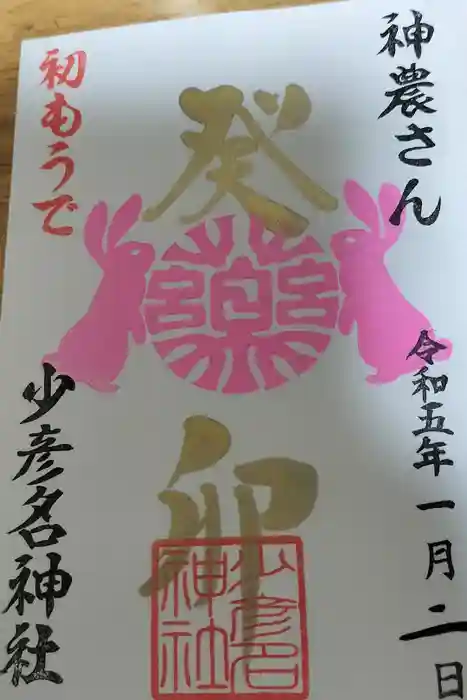 神農さん
令和五年一月二日
癸
宮薬宮
卯
少彦名
神社
初もうで
少彦名神社